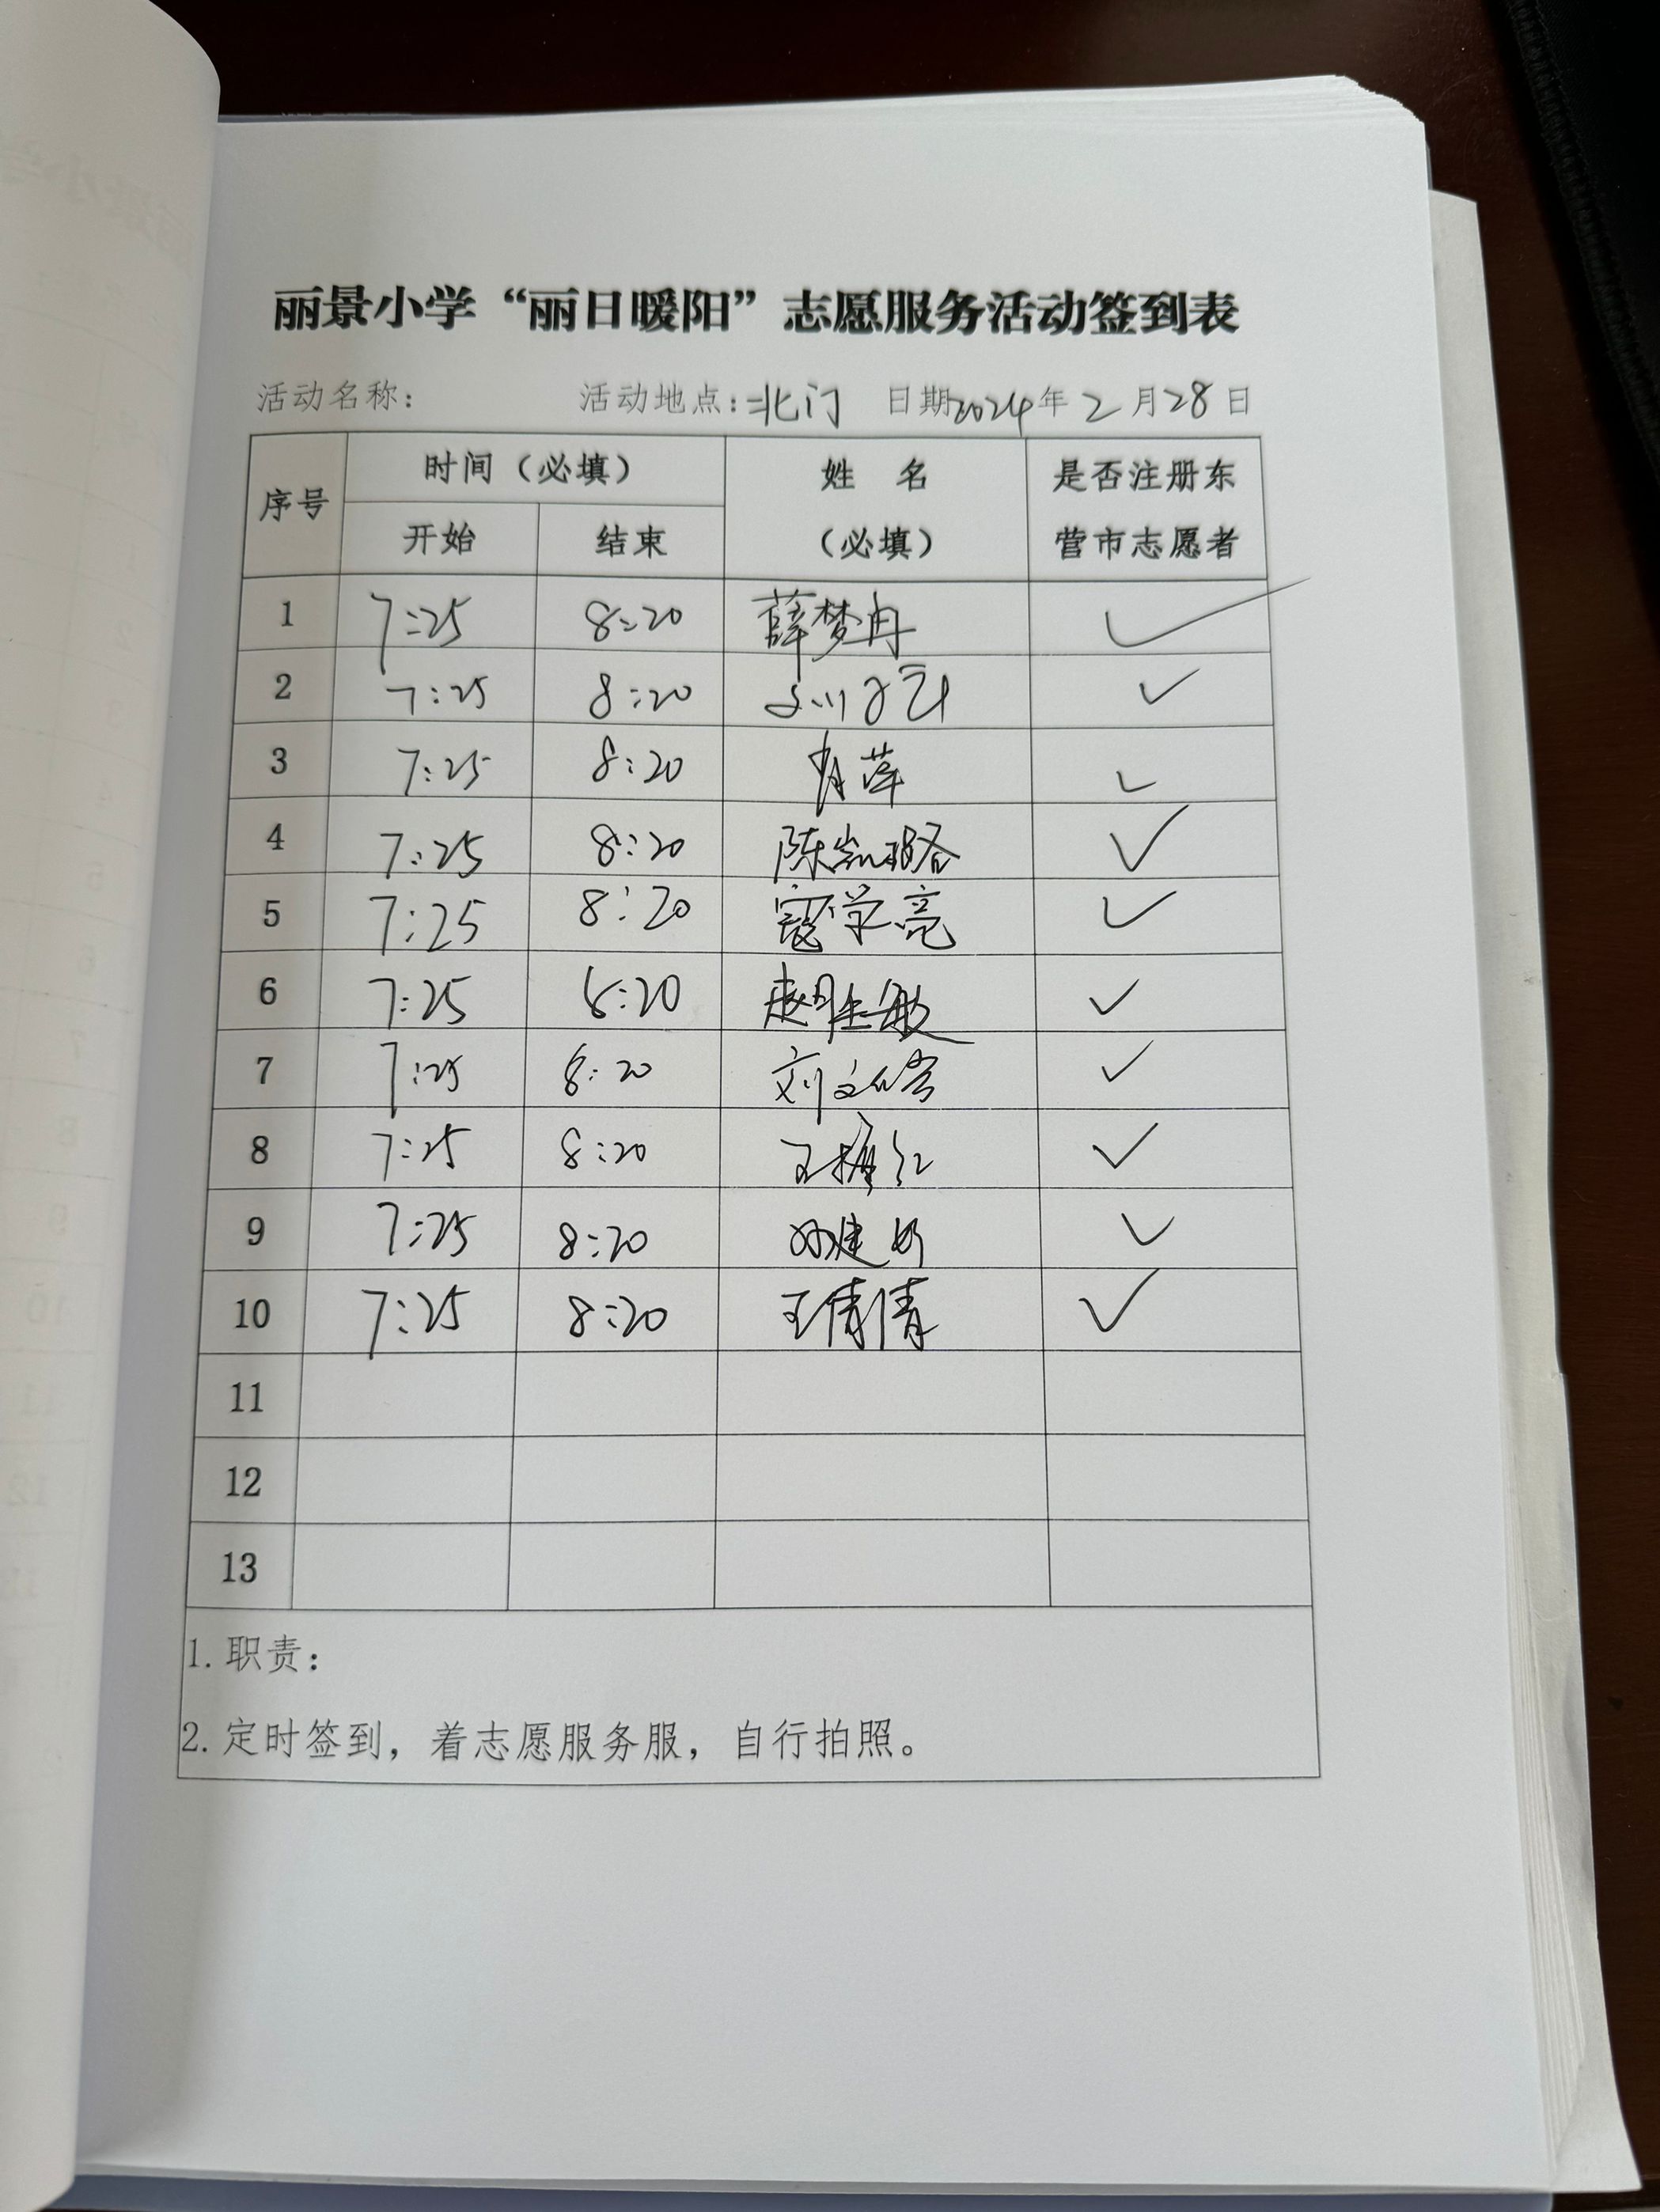 丽景小学“丽日暖阳”志愿服务活动签到表
活动名称： 活动地点：北门 日期2024年2月28日
序号 时间（必填） 姓 名（必填） 是否注册东营市志愿者
开始 结束
1 7:25 8:20 薛梦冉 ✓
2 7:25 8:20 ✓
3 7:25 8:20 肖萍 ✓
4 7:25 8:20 陈凯璐 ✓
5 7:25 8:20 寇学亮 ✓
6 7:25 8:20 ✓
7 7:25 8:20 刘文 ✓
8 7:25 8:20 王 红 ✓
9 7:25 8:20 孙建 ✓
10 7:25 8:20 王倩倩 ✓
11
12
13
1. 职责：
2. 定时签到，着志愿服务服，自行拍照。